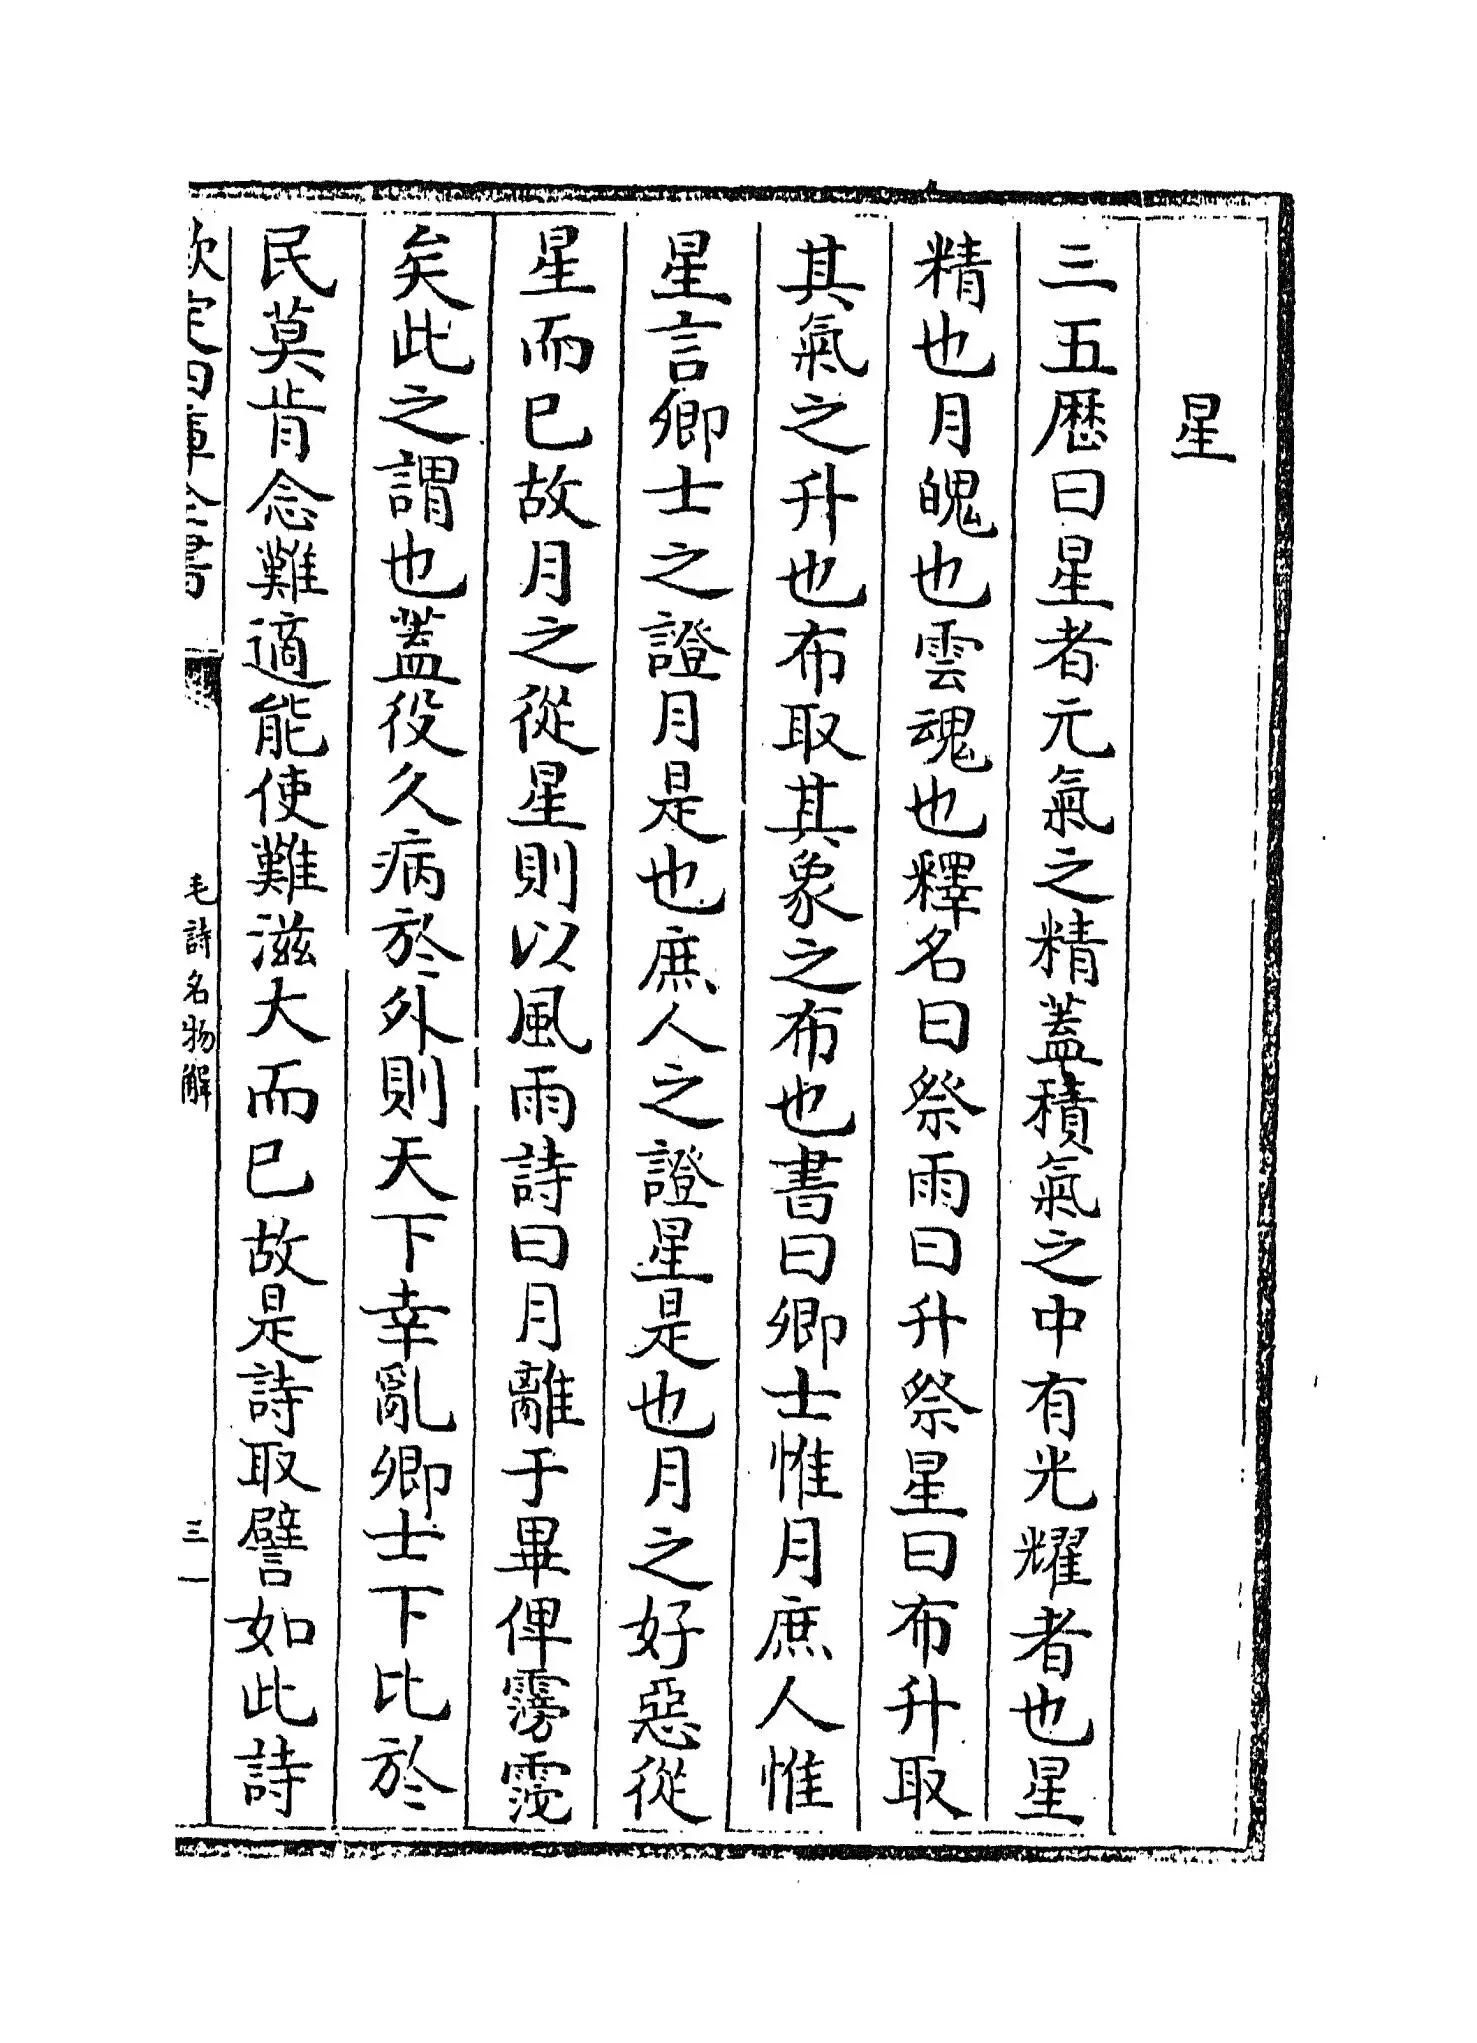 星
三五歴曰星者元氣之精蓋積氣之中有光耀者也星
精也月魄也雲魂也釋名曰祭雨曰升祭星曰布升取
其氣之升也布取其象之布也書曰卿士惟月庶人惟
星言卿士之證月是也庶人之證星是也月之好惡從
星而已故月之從星則以風雨詩曰月離于畢俾霶霑
矣此之謂也蓋役久病於外則天下幸亂卿士下比於
民莫肯念難適能使難滋大而已故是詩取譬如此詩
欽定四庫全書
毛詩名物解
三